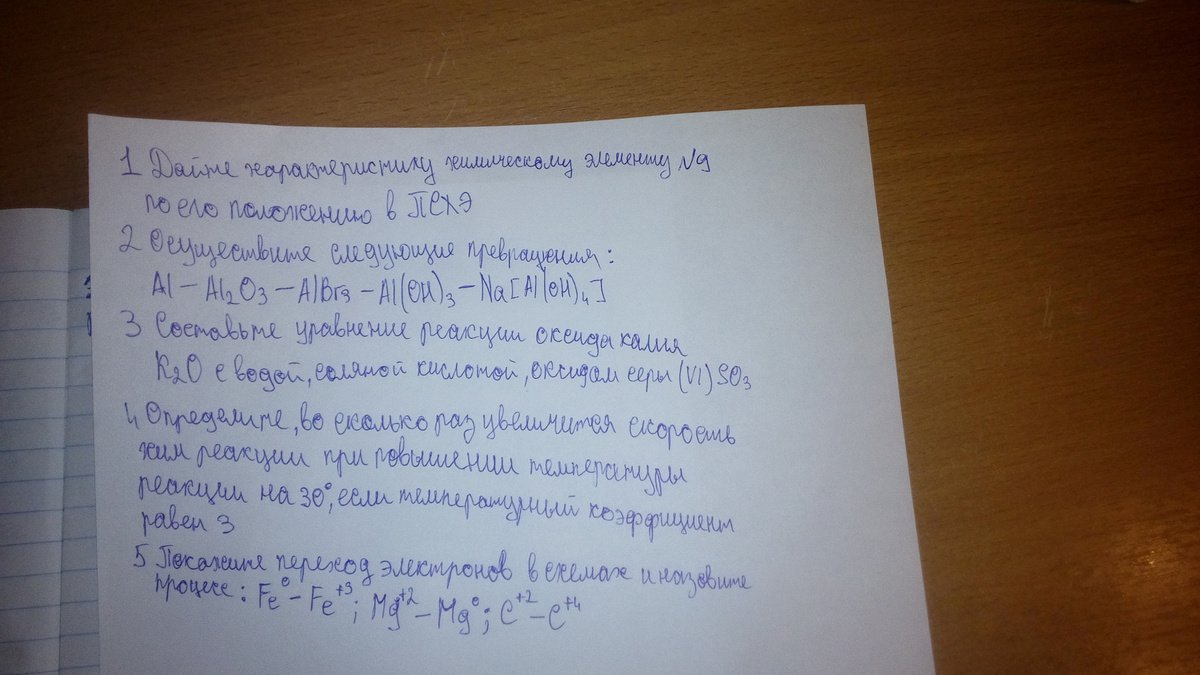 1 Дайте характеристику химическому элементу №9
по его положению в ПСХЭ
2 Осуществите следующие превращения:
Al – Al₂O₃ – AlBr₃ – Al(OH)₃ – Na[Al(OH)₄]
3 Составьте уравнение реакции оксида калия
K₂O с водой, соляной кислотой, оксидом серы (VI) SO₃
4 Определите, во сколько раз увеличится скорость
хим реакции при повышении температуры
реакции на 30°, если температурный коэффициент
равен 3
5 Покажите переход электронов в схемах и назовите
процесс: Fe⁰ – Fe⁺³; Mg⁺² – Mg⁰; C⁺² – C⁺⁴